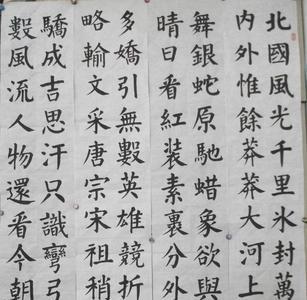 北國風光千里氷封萬
内外惟餘莽莽大河上
舞銀蛇原馳蜡象欲與
晴日看紅装素裹分外
多嬌引無數英雄競折
略輸文采唐宗宋祖稍
驕成吉思汗只識彎弓
數風流人物還看今朝